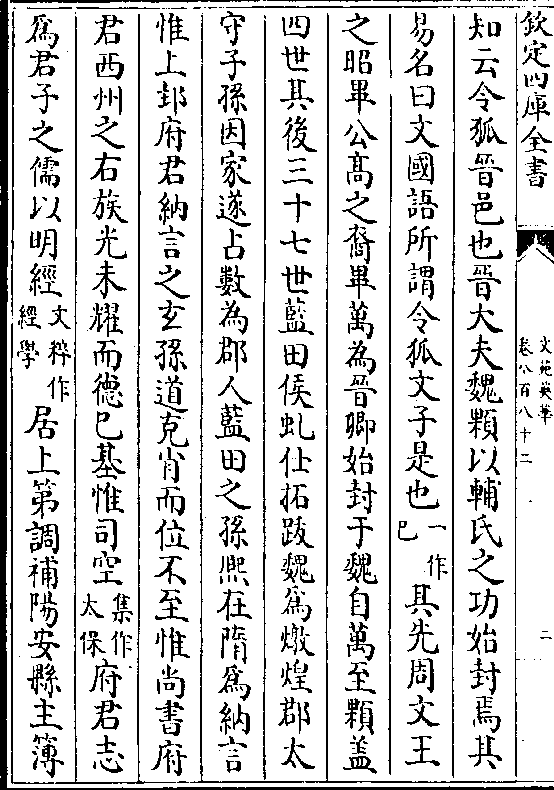 欽定四庫全書
文苑英華
卷八百八十二
二
知云令狐晉邑也晉大夫魏顆以輔氏之功始封焉其
易名曰文國語所謂令狐文子是也一作巳其先周文王
之昭畢公髙之裔畢萬為晉卿始封于魏自萬至顆盖
四世其後三十七世藍田侯虬仕拓跋魏爲燉煌郡太
守子孫因家遂占數為郡人藍田之孫熈在隋爲納言
惟上邽府君納言之玄孫道克肖而位不至惟尚書府
君西州之右族光未耀而德巳基惟司空集作太保府君志
爲君子之儒以明經文粹作經學居上第調補陽安縣主簿